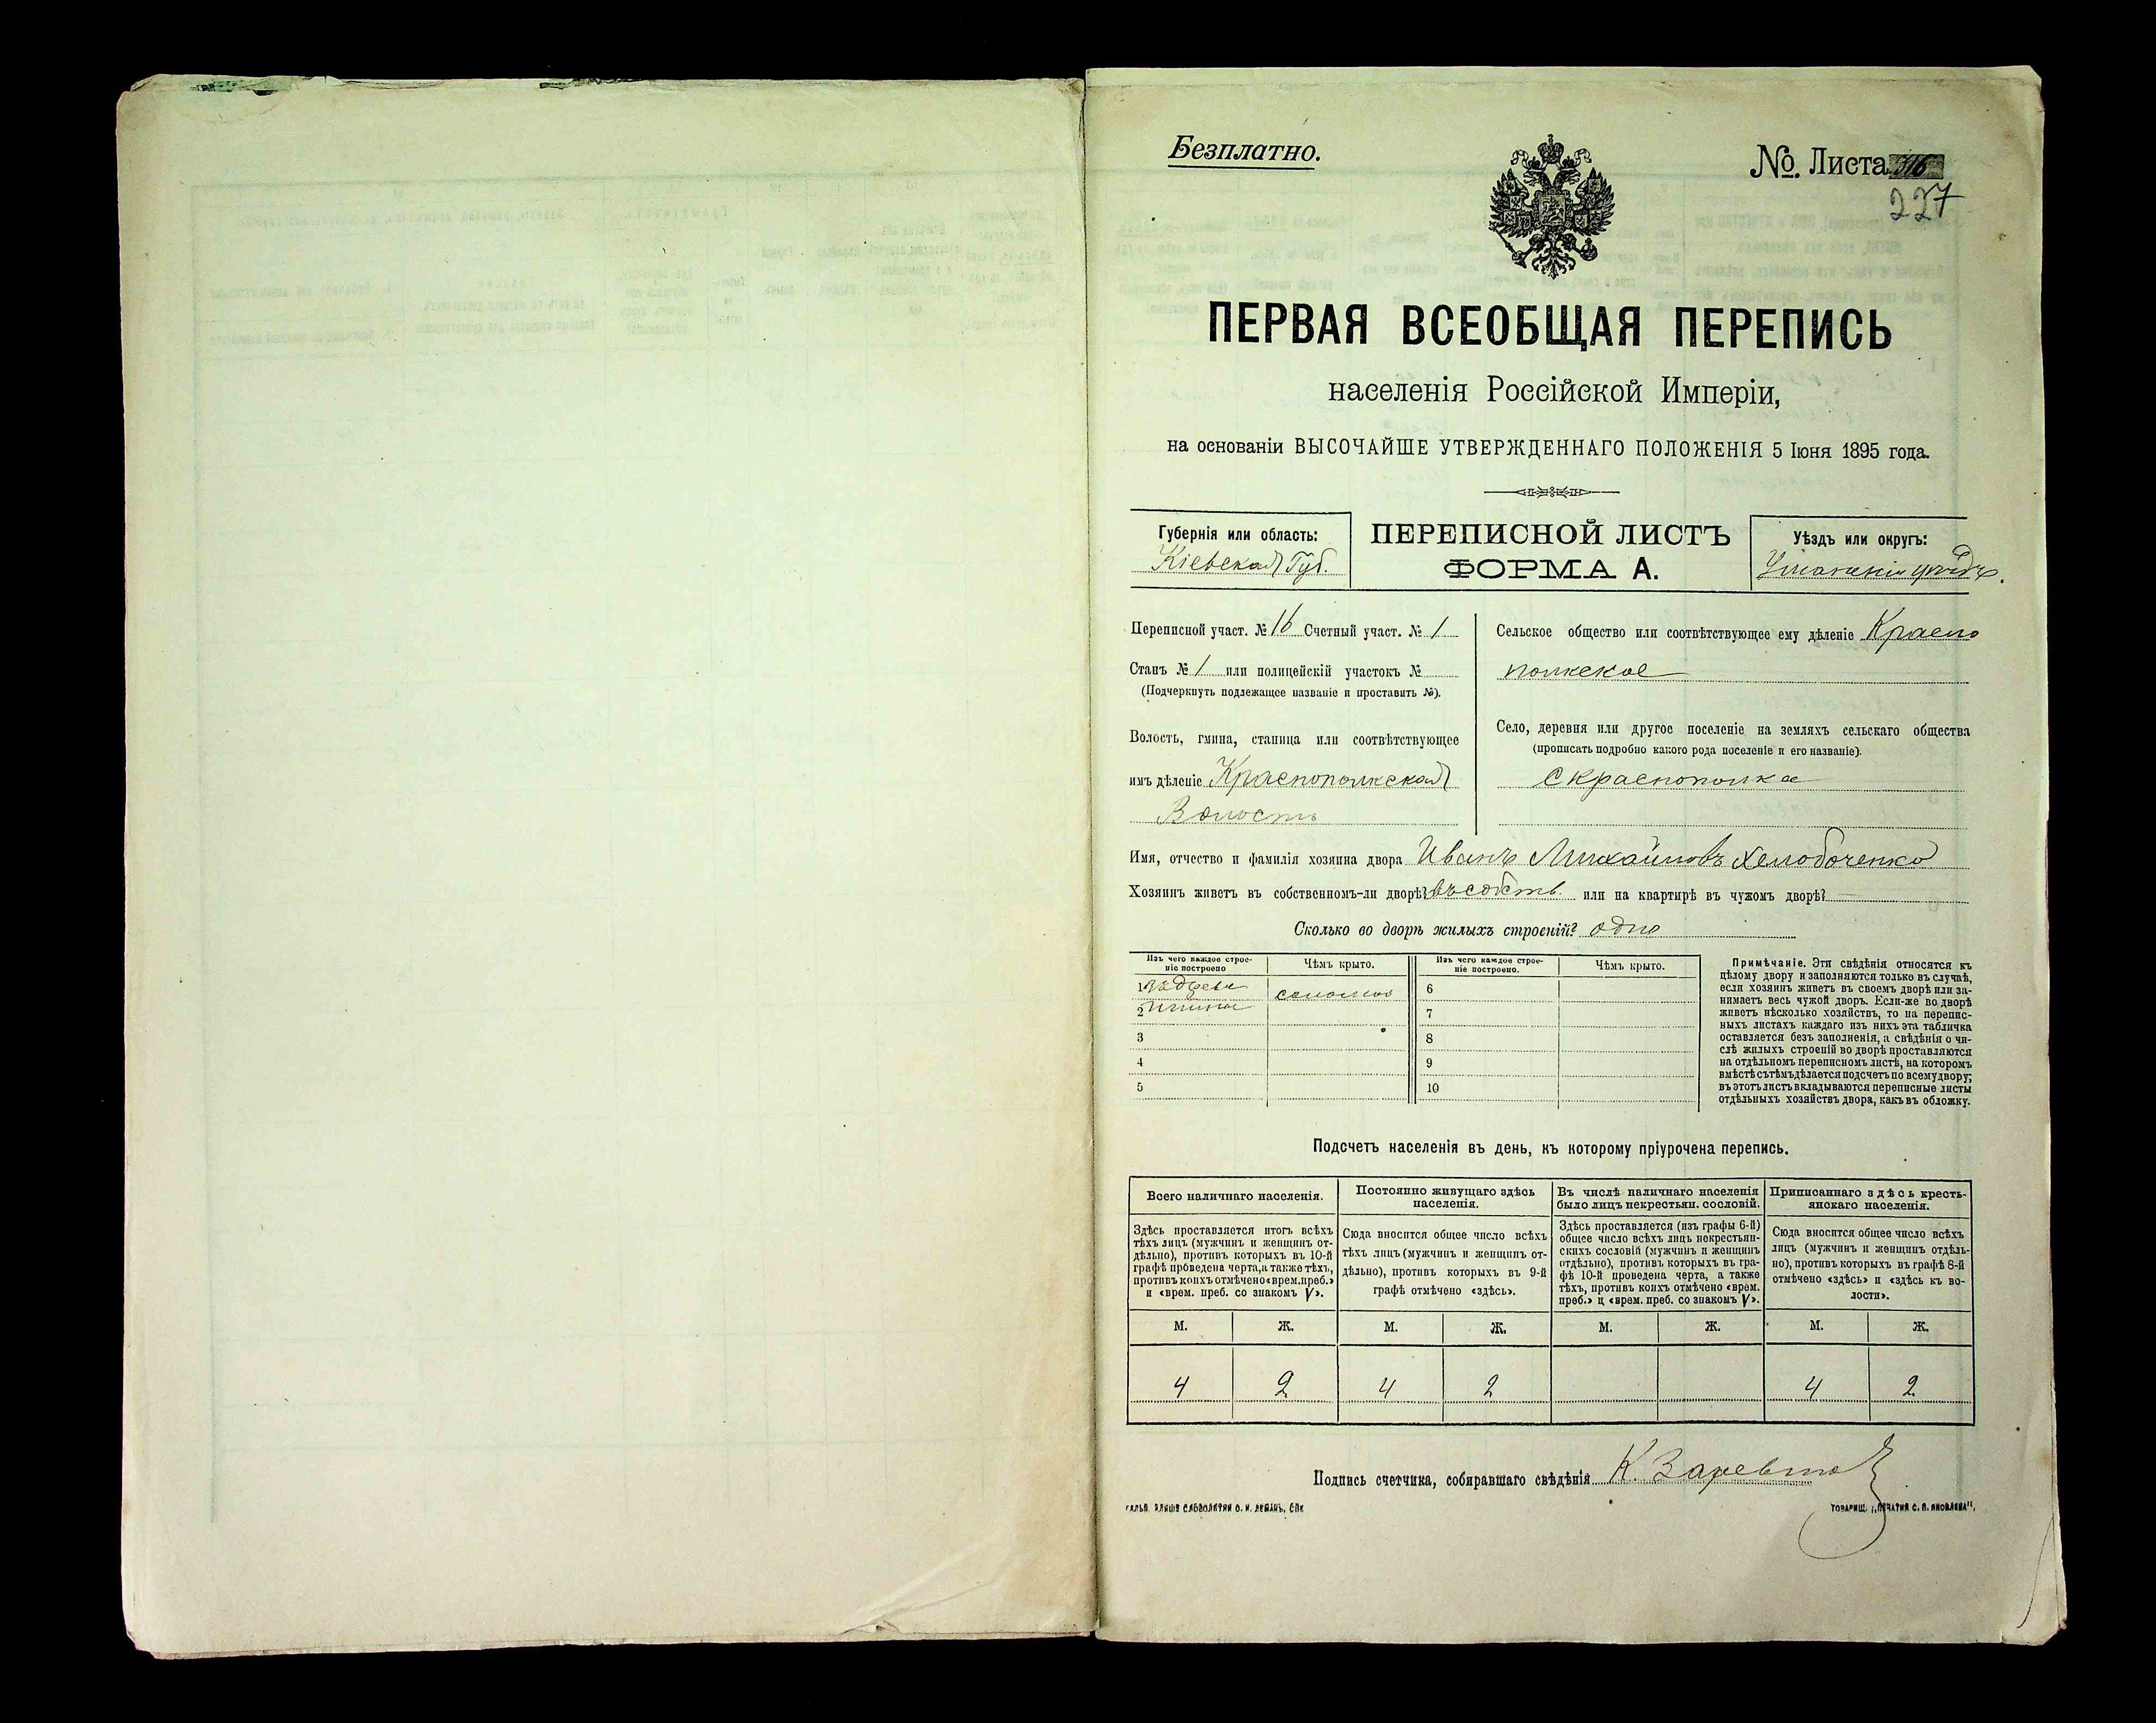 Безплатно.
№ Листа 316
227
ПЕРВАЯ ВСЕОБЩАЯ ПЕРЕПИСЬ
населенія Россійской Имперіи,
на основаніи ВЫСОЧАЙШЕ УТВЕРЖДЕННАГО ПОЛОЖЕНІЯ 5 Іюня 1895 года.
Губернія или область:
Кіевская Губ.
ПЕРЕПИСНОЙ ЛИСТЪ
ФОРМА А.
Уѣздъ или округъ:
Уманскій уѣздъ.
Переписной участ. № 16 Счетный участ. № 1
Станъ № 1 или полицейскій участокъ №
(Подчеркнуть подлежащее названіе и проставить №).
Волость, гмина, станица или соотвѣтствующее
имъ дѣленіе Краснополкская
Волость
Сельское общество или соотвѣтствующее ему дѣленіе Красно
полкское
Село, деревня или другое поселеніе на земляхъ сельскаго общества
(прописать подробно какого рода поселеніе и его названіе).
с Краснополка
Имя, отчество и фамилія хозяина двора Иванъ Михайловъ
Хозяинъ живетъ въ собственномъ-ли дворѣ? въ собств. или на квартирѣ въ чужомъ дворѣ?
Сколько во дворѣ жилыхъ строеній? одно
Изъ чего каждое строе-
ніе построено
Чѣмъ крыто.
Изъ чего каждое строе-
ніе построено.
Чѣмъ крыто.
1 соломою 6
2 глины 7
3 8
4 9
5 10
Примѣчаніе. Эти свѣдѣнія относятся къ
цѣлому двору и заполняются только въ случаѣ,
если хозяинъ живетъ въ своемъ дворѣ или за-
нимаетъ весь чужой дворъ. Если-же во дворѣ
живетъ нѣсколько хозяйствъ, то на перепис-
ныхъ листахъ каждаго изъ нихъ эта табличка
оставляется безъ заполненія, а свѣдѣнія о чи-
слѣ жилыхъ строеній во дворѣ проставляются
на отдѣльномъ переписномъ листѣ, на которомъ
вмѣстѣ съ тѣмъ дѣлается подсчетъ по всему двору;
въ этотъ листъ вкладываются переписные листы
отдѣльныхъ хозяйствъ двора, какъ въ обложку.
Подсчетъ населенія въ день, къ которому пріурочена перепись.
Всего наличнаго населенія.
Здѣсь проставляется итогъ всѣхъ
тѣхъ лицъ (мужчинъ и женщинъ от-
дѣльно), противъ которыхъ въ 10-й
графѣ проведена черта, а также тѣхъ,
противъ коихъ отмѣчено «врем. преб.»
и «врем. преб. со знакомъ V».
Постоянно живущаго здѣсь
населенія.
Сюда вносится общее число всѣхъ
тѣхъ лицъ (мужчинъ и женщинъ от-
дѣльно), противъ которыхъ въ 9-й
графѣ отмѣчено «здѣсь».
Въ числѣ наличнаго населенія
было лицъ некрестьян. сословій.
Здѣсь проставляется (изъ графы 6-й)
общее число всѣхъ лицъ некрестьян-
скихъ сословій (мужчинъ и женщинъ
отдѣльно), противъ которыхъ въ гра-
фѣ 10-й проведена черта, а также
тѣхъ, противъ коихъ отмѣчено «врем.
преб.» и «врем. преб. со знакомъ V».
Приписаннаго здѣсь кресть-
янскаго населенія.
Сюда вносится общее число всѣхъ
лицъ (мужчинъ и женщинъ отдѣль-
но), противъ которыхъ въ графѣ 8-й
отмѣчено «здѣсь» и «здѣсь къ во-
лости».
М. Ж. М. Ж. М. Ж. М. Ж.
4 2 4 2 4 2
Подпись счетчика, собиравшаго свѣдѣнія К.
ТОВАРИЩ. „ПЕЧАТНЯ С. П. ЯКОВЛЕВА“.